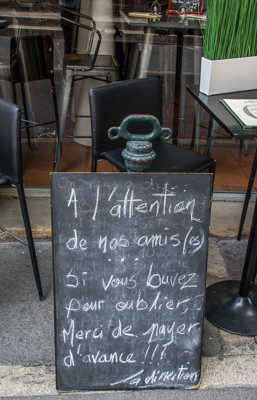 A l'attention
de nos amis(es)
...
Si vous buvez
pour oublier,
Merci de payer
d'avance !!!
La direction